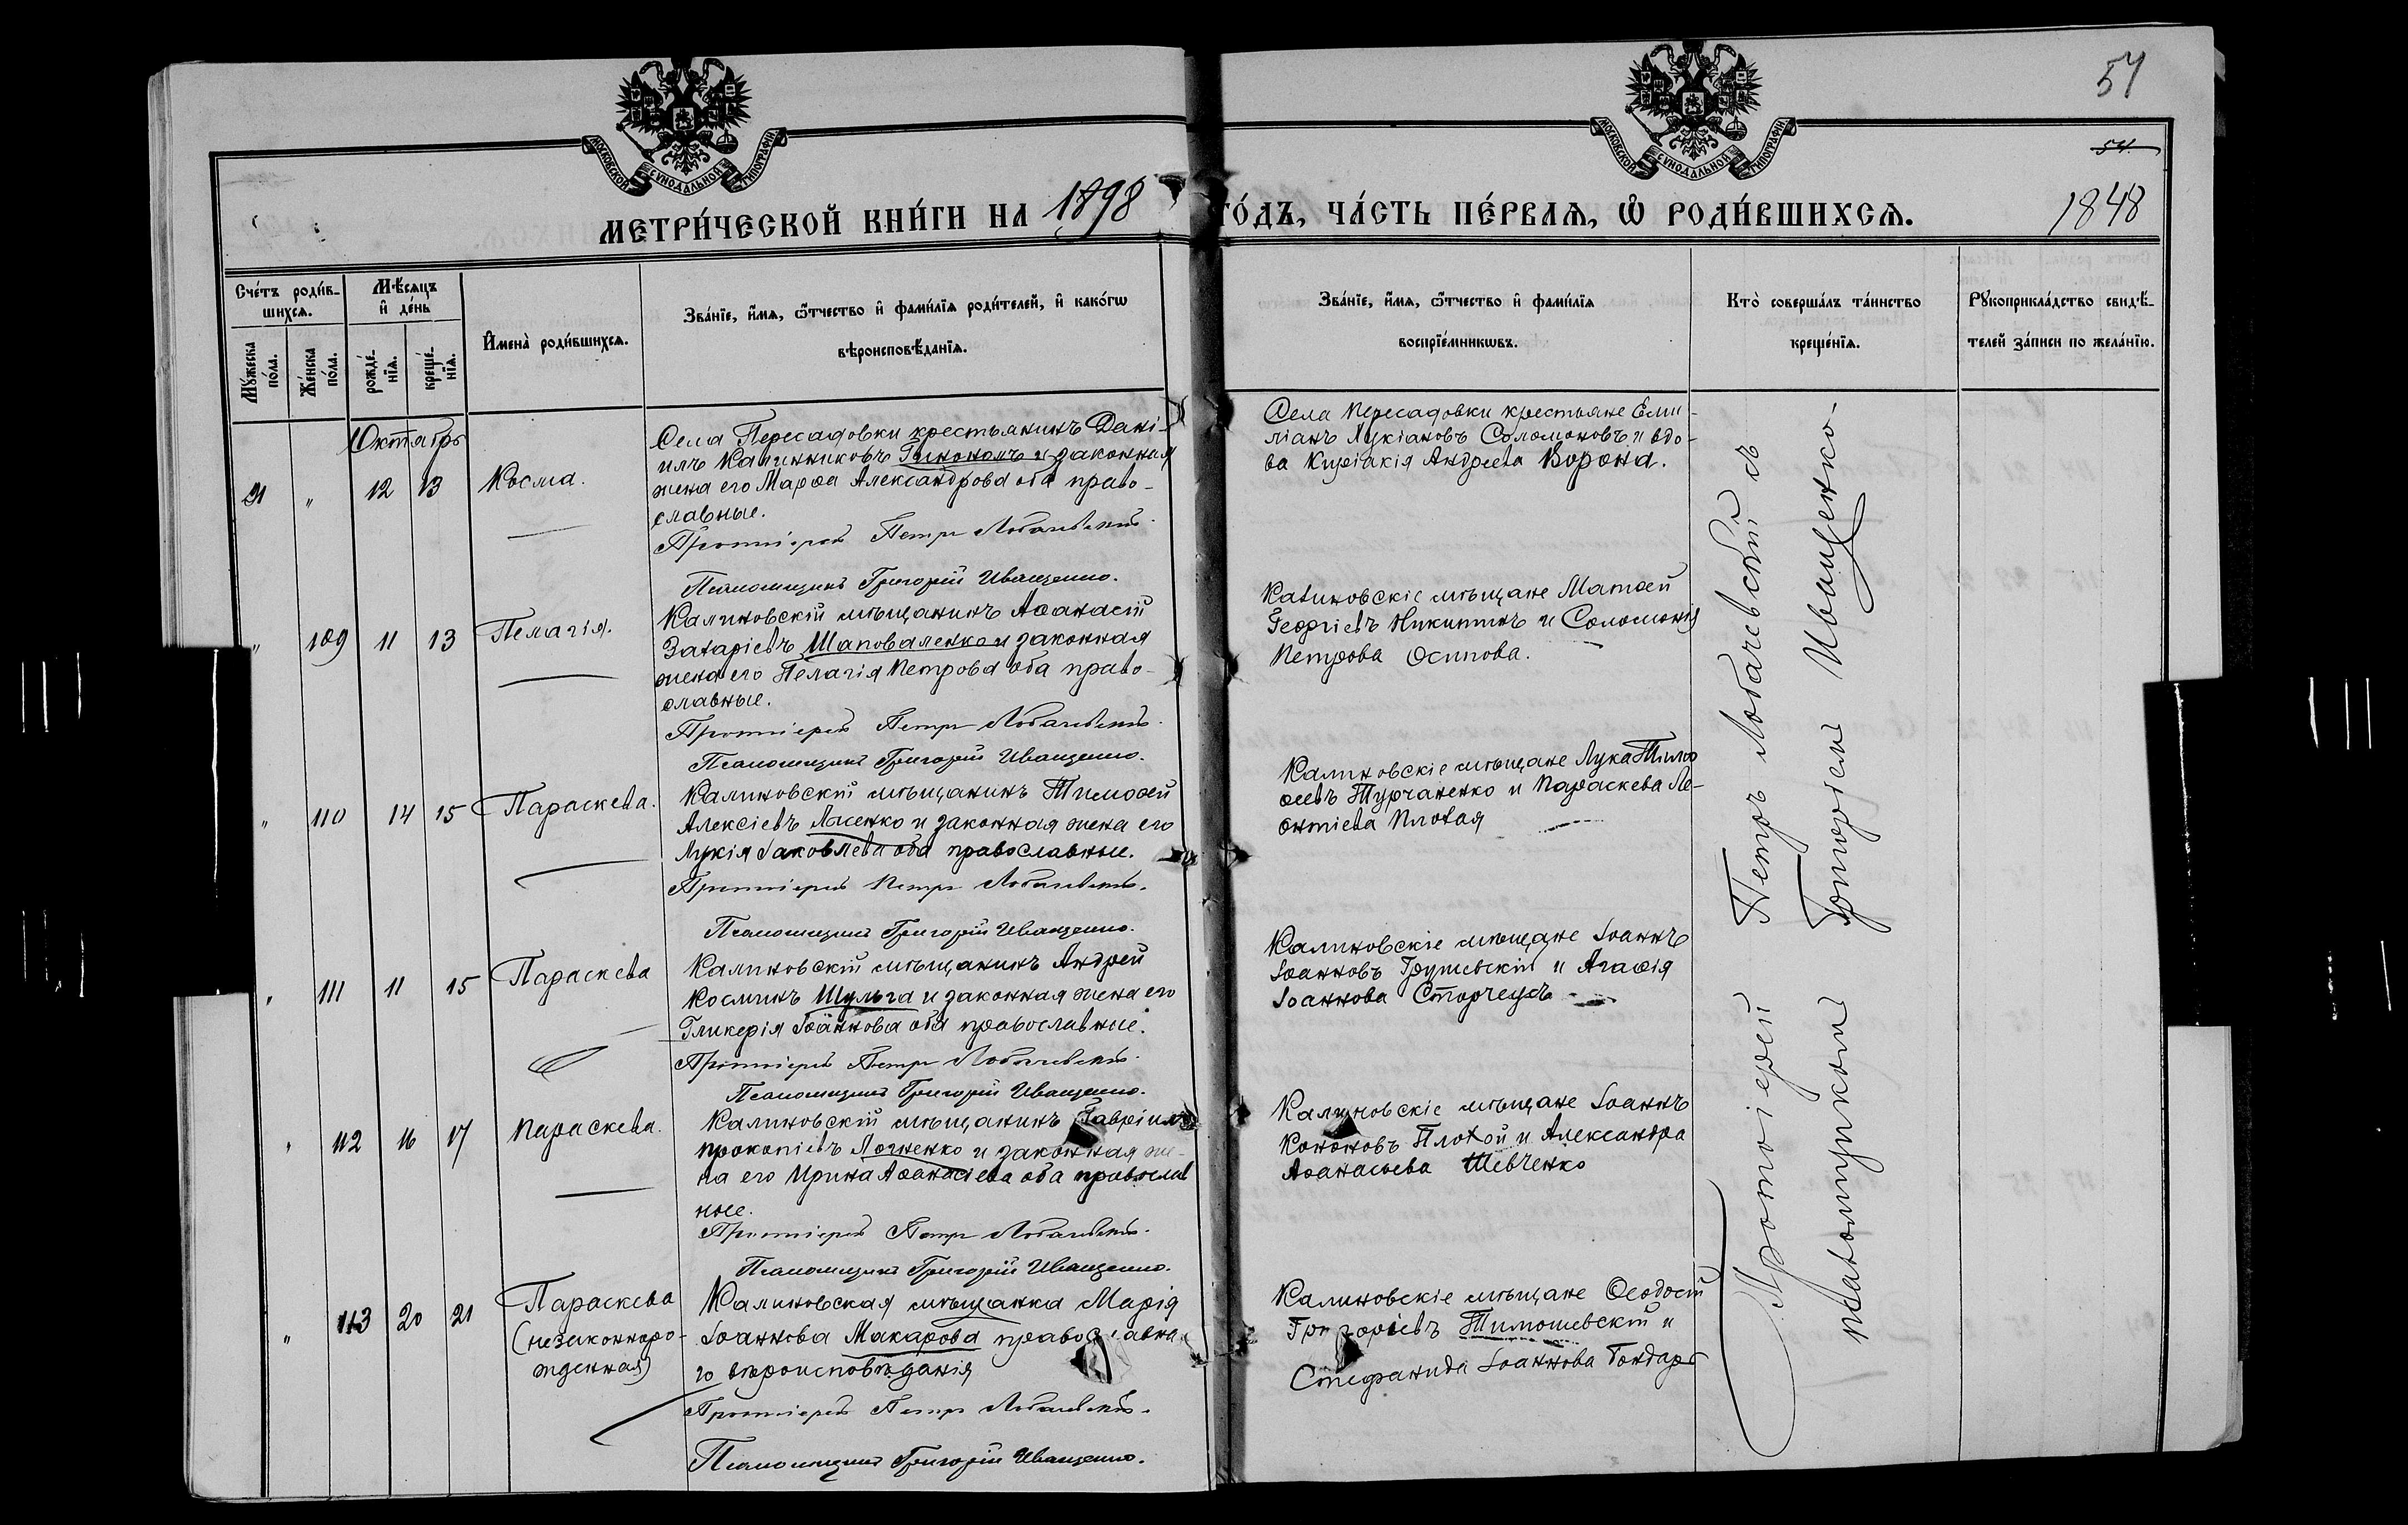 57
54.
МОСКОВСКОЙ СѴНОДАЛЬНОЙ ТИПОГРАФІИ
МОСКОВСКОЙ СѴНОДАЛЬНОЙ ТИПОГРАФІИ
МЕТРИ́ЧЕСКОЙ КНИ́ГИ НА 1898 ГО́ДЪ, ЧА́СТЬ ПЕ́РВАѦ, Ѡ҆ РОДИ́ВШИХСѦ.
1848
Сче́тъ роди́в-
шихсѧ.
Мѣ́сѧцъ
и҆ де́нь
Му́жеска по́ла.
Же́нска по́ла.
рожде́-нїѧ.
креще́-нїѧ.
И҆мена̀ роди́вшихсѧ.
Зва́нїе, и҆́мѧ, ѻ҆́тчество и҆ фами́лїѧ роди́телей, и҆ како́гѡ
вѣроисповѣ́данїѧ.
Зва́нїе, и҆́мѧ, ѻ҆́тчество и҆ фами́лїѧ
воспрїе́мникѡвъ.
Кто̀ соверша́лъ та́инство
креще́нїѧ.
Рꙋкоприкла́дство свидѣ́-
телей за́писи по жела́нїю.
Октябрь
91 " 12 13 Косма.
Села Пересадовки крестьянинъ Дані-
илъ Калинниковъ и законная
жена его Марѳа Александрова оба право-
славные.
Протоіерей Петръ Лобачевскій.
Псаломщикъ Григорій Иващенко.
Села Пересадовки крестьяне Еми-
ліанъ Лукіановъ Соломоновъ и вдо-
ва Киріакія Андреева Ворона.
" 109 11 13 Пелагія.
Калиновскій мѣщанинъ Аѳанасій
Захаріевъ Шаповаленко и законная
жена его Пелагія Петрова оба право-
славные.
Протоіерей Петръ Лобачевскій.
Псаломщикъ Григорій Иващенко.
Калиновскіе мѣщане Матѳей
Георгіевъ Никитинъ и Соломонія
Петрова Осипова.
" 110 14 15 Параскева.
Калиновскій мѣщанинъ Тимоѳей
Алексіевъ Лысенко и законная жена его
Лукія Іаковлева оба православные.
Протоіерей Петръ Лобачевскій.
Псаломщикъ Григорій Иващенко.
Калиновскіе мѣщане Лука Тимо
ѳеевъ Турчаненко и Параскева Ле-
онтіева Плохая
" 111 11 15 Параскева
Калиновскій мѣщанинъ Андрей
Косминъ Шульга и законная жена его
Гликерія Іоаннова оба православные.
Протоіерей Петръ Лобачевскій.
Псаломщикъ Григорій Иващенко.
Калиновскіе мѣщане Іоаннъ
Іоанновъ Грушевскій и Агаѳія
Іоаннова Сторчеусъ
" 112 16 17 Параскева.
Калиновскій мѣщанинъ Гавріилъ
Прокопіевъ Логненко и законная же-
на его Ирина Аѳанасіева оба православ
ные.
Протоіерей Петръ Лобачевскій.
Псаломщикъ Григорій Иващенко.
Калиновскіе мѣщане Іоаннъ
Кононовъ Плохой и Александра
Аѳанасьева Шевченко
" 113 20 21 Параскева
(незаконноро-
жденная)
Калиновская мѣщанка Марія
Іоаннова Макарова православна
го вѣроисповѣданія
Протоіерей Петръ Лобачевскій.
Псаломщикъ Григорій Иващенко.
Калиновскіе мѣщане Ѳеодосій
Григоріевъ Тимошевскій и
Стефанида Іоаннова Бондарь
Протоіерей Петръ Лобачевскій съ
псаломщикомъ Григоріемъ Иващенко.